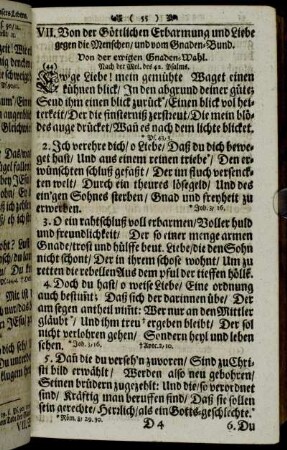 ( 55 )
VII. Von der Göttlichen Erbarmung und Liebe
gegen die Menschen/ und vom Gnaden-Bund.
Von der ewigen Gnaden-Wahl.
Nach der Mel. des 42. Psalms.
(44)
Ewge Liebe! mein gemühte Waget einen
kühnen blick/ In den abgrund deiner güte;
Send ihm einen blick zurück*/ Einen blick vol hei-
terkeit/ Der die finsterniß zerstreut/ Die mein blö-
des auge drücket/ Wañ es nach dem lichte blicket.
2. Ich verehre dich/ o Liebe/ Daß du dich bewe-
get hast/ Und aus einem reinen triebe*/ Den er-
wünschten schluß gefaßt/ Der im fluch versenck-
ten welt/ Durch ein theures lösegeld/ Und des
ein'gen Sohnes sterben/ Gnad und freyheit zu
erwerben. * Joh. 3, 16.
3. O ein rahtschluß voll erbarmen/ Voller huld
und freundlichkeit/ Der so einer menge armen
Gnade/ trost und hülffe beut. Liebe/ die den Sohn
nicht schont/ Der in ihrem schose wohnt/ Um zu
retten die rebellen Aus dem pful der tieffen höllē.
4. Doch du hast/ o weise Liebe/ Eine ordnung
auch bestim̃t; Daß sich der darinnen übe/ Der
am segen antheil nim̃t: Wer nur an den Mittler
gläubt*/ Und ihm treu† ergeben bleibt/ Der sol
nicht verlohren gehen/ Sondern heyl und leben
sehen. * Joh. 3, 16. † Apoc. 2, 10.
5. Dañ die du verseh'n zuvoren/ Sind zu Chri-
sti bild erwählt/ Werden also neu gebohren/
Seinen brüdern zugezehlt: Und die/ so verordnet
sind/ Kräftig man beruffen find/ Daß sie sollen
sein gerechte/ Herzlich/ als ein Gotts-geschlechte.*
* Röm. 8: 29. 30.
D 4
6. Du